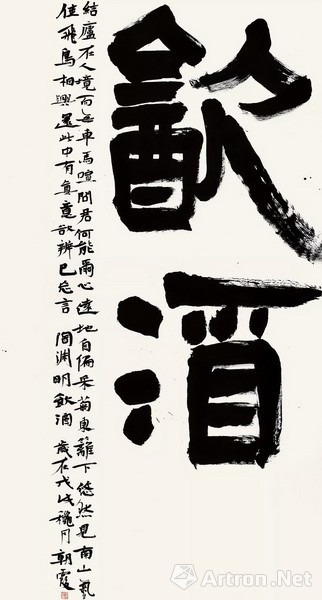 㱃酒
結廬在人境而无車馬喧問君何能爾心遠地自偏采菊東籬下悠然見南山氣
佳飛鳥相與還此中有真意欲辨已忘言 陶渊明飲酒 歲在戊戌穐月 朝霞
雅昌艺术网
Artron.Net